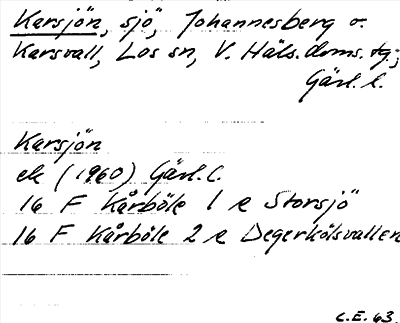 Karsjön, sjö, Johannesberg o.
Karsvall, Los sn, V. Häls. doms. tg;
Gävl. l.
Karsjön
ek (1960) Gävl. l.
16 F Kårböle 1 e Storsjö
16 F Kårböle 2 e Degerkölsvallen
C.E. 63.